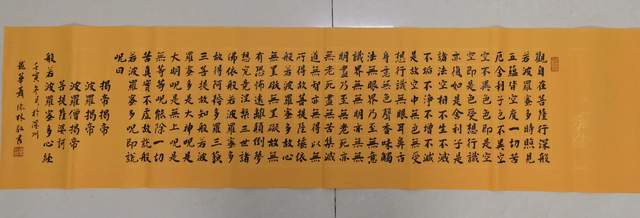 觀自在菩薩行深般
若波羅蜜多時照見
五蘊皆空度一切苦
厄舍利子色不異空
空不異色色即是空
空即是色受想行識
亦復如是舍利子是
諸法空相不生不滅
不垢不淨不增不減
是故空中無色無受
想行識無眼耳鼻舌
身意無色聲香味觸
法無眼界乃至無意
識界無無明亦無無
明盡乃至無老死亦
無老死盡無苦集滅
道無智亦無得以無
所得故菩提薩埵依
般若波羅蜜多故心
無罣礙無罣礙故無
有恐怖遠離顛倒夢
想究竟涅槃三世諸
佛依般若波羅蜜多
故得阿耨多羅三藐
三菩提故知般若波
羅蜜多是大神呪是
大明呪是無上呪是
無等等呪能除一切
苦真實不虛故說般
若波羅蜜多呪即說
呪曰
揭帝揭帝
波羅揭帝
波羅僧揭帝
菩提薩婆訶
般若波羅蜜多心經
壬寅年